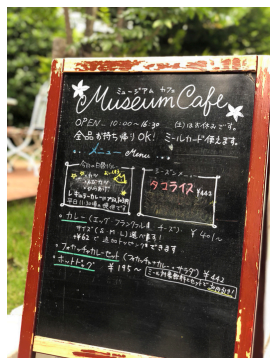 ミュージアム カフェ
Museum Cafe
OPEN 10:00〜16:30 (土)はお休みです。
全品お持ち帰りOK! ミールカード使えます。
メニュー Menu
タコライス ¥442
カレー(エッグ・フランクフルト・チーズ) ¥401〜
サイズ(S・M・L)選べます!
+¥62で追加トッピングできます
フォカッチャカレーセット(フォカッチャ・カレー・サラダ) ¥442
ホットドッグ ¥195〜